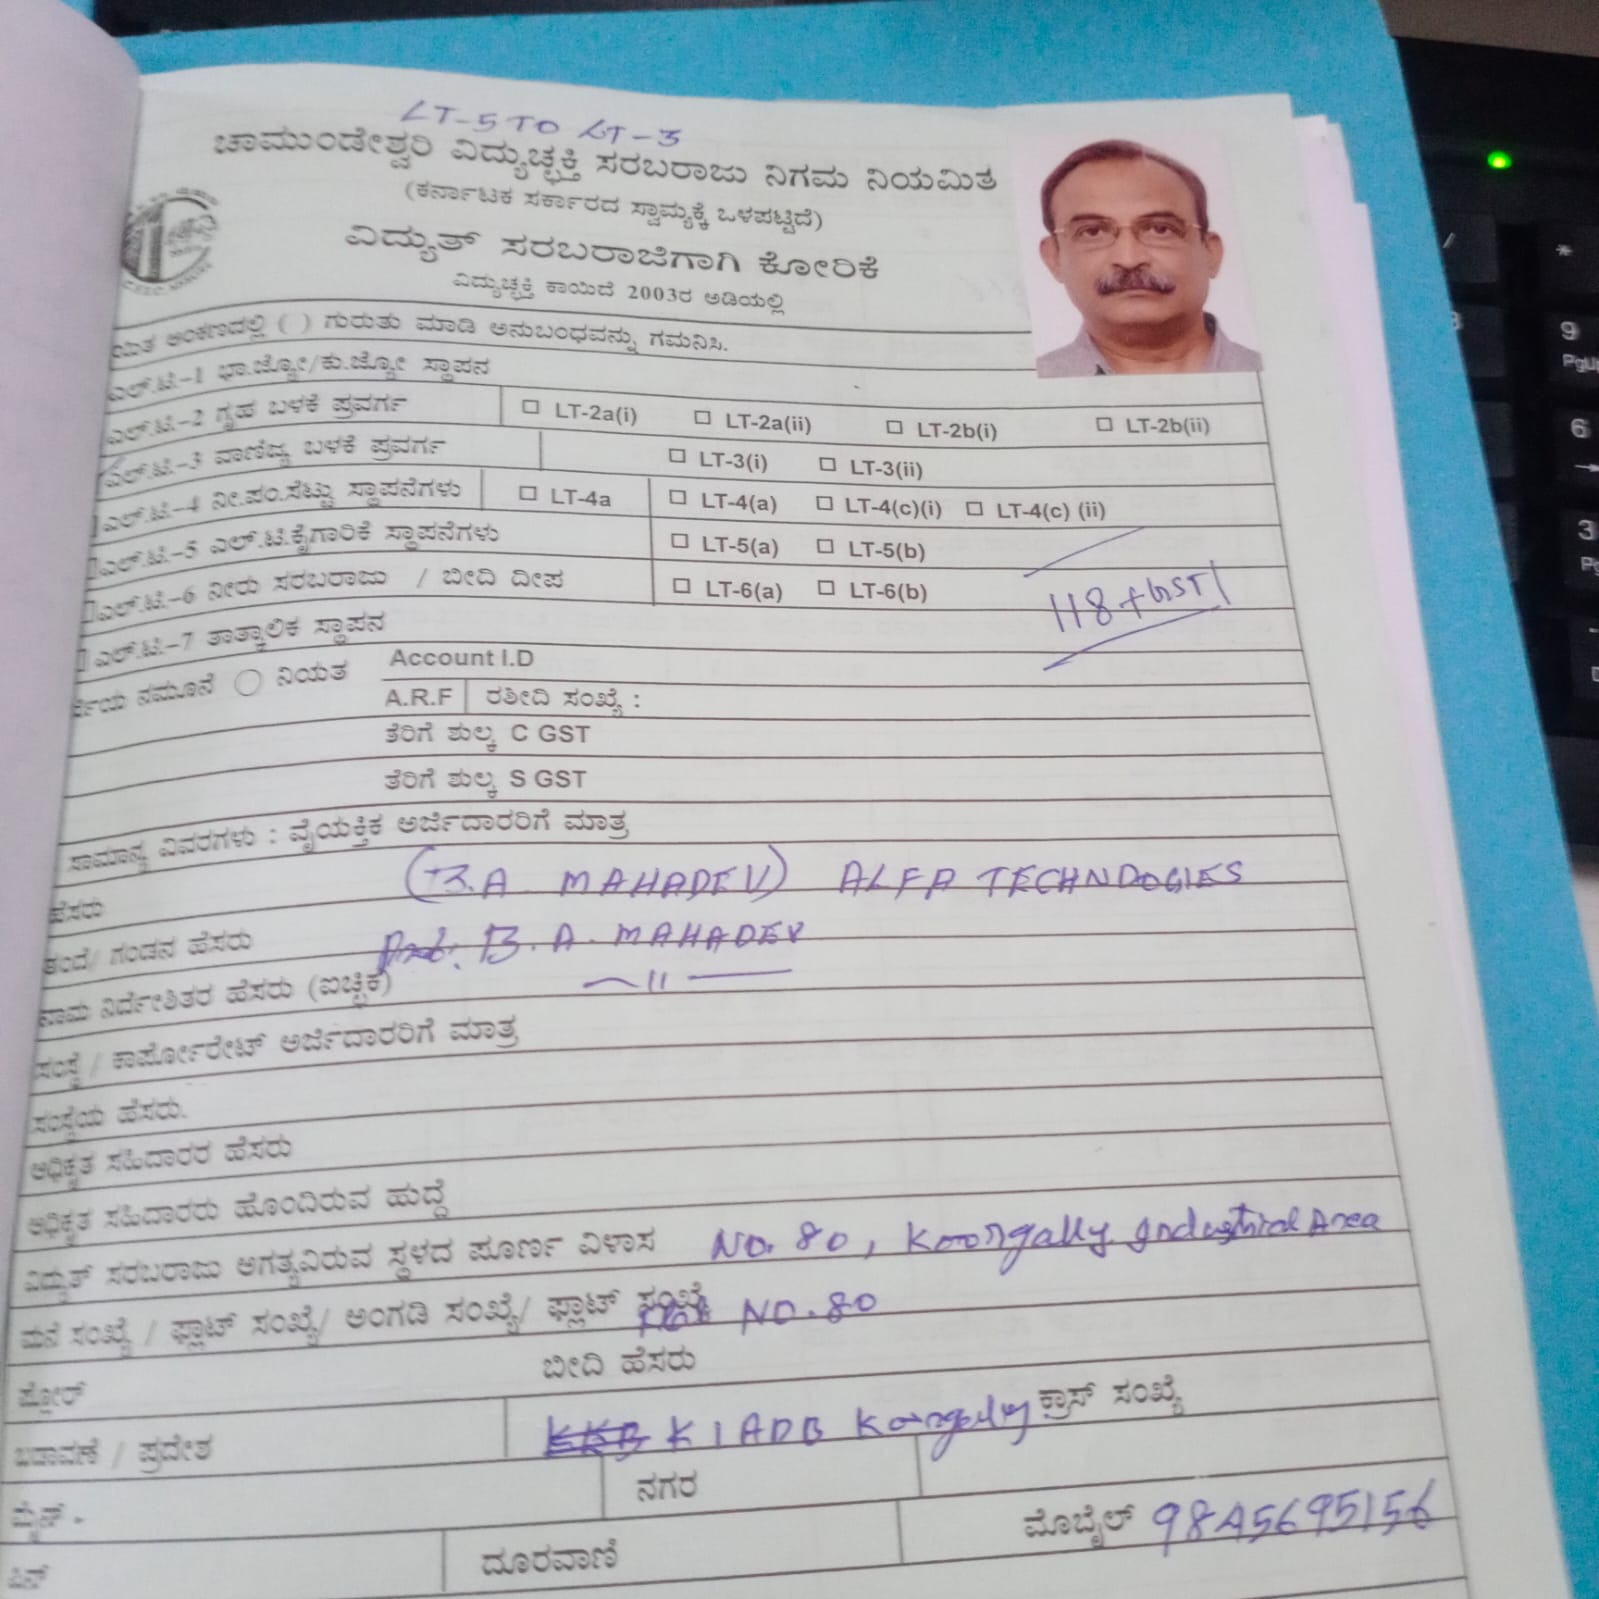 LT-5 TO LT-3
ಚಾಮುಂಡೇಶ್ವರಿ ವಿದ್ಯುಚ್ಛಕ್ತಿ ಸರಬರಾಜು ನಿಗಮ ನಿಯಮಿತ
(ಕರ್ನಾಟಕ ಸರ್ಕಾರದ ಸ್ವಾಮ್ಯಕ್ಕೆ ಒಳಪಟ್ಟಿದೆ)
ವಿದ್ಯುತ್ ಸರಬರಾಜಿಗಾಗಿ ಕೋರಿಕೆ
ವಿದ್ಯುಚ್ಛಕ್ತಿ ಕಾಯಿದೆ 2003ರ ಅಡಿಯಲ್ಲಿ
ಅಂಕಣದಲ್ಲಿ ( ) ಗುರುತು ಮಾಡಿ ಅನುಬಂಧವನ್ನು ಗಮನಿಸಿ.
ಎಲ್.ಟಿ.-1 ಭಾ.ಜ್ಯೋ/ಕು.ಜ್ಯೋ ಸ್ಥಾಪನ
ಎಲ್.ಟಿ.-2 ಗೃಹ ಬಳಕೆ ಪ್ರವರ್ಗ □ LT-2a(i) □ LT-2a(ii) □ LT-2b(i) □ LT-2b(ii)
ಎಲ್.ಟಿ.-3 ವಾಣಿಜ್ಯ ಬಳಕೆ ಪ್ರವರ್ಗ □ LT-3(i) □ LT-3(ii)
ಎಲ್.ಟಿ.-4 ನೀ.ಪಂ.ಸೆಟ್ಟು ಸ್ಥಾಪನೆಗಳು □ LT-4a □ LT-4(a) □ LT-4(c)(i) □ LT-4(c) (ii)
ಎಲ್.ಟಿ.-5 ಎಲ್.ಟಿ.ಕೈಗಾರಿಕೆ ಸ್ಥಾಪನೆಗಳು □ LT-5(a) □ LT-5(b)
ಎಲ್.ಟಿ.-6 ನೀರು ಸರಬರಾಜು / ಬೀದಿ ದೀಪ □ LT-6(a) □ LT-6(b)
118 + GST
ಎಲ್.ಟಿ.-7 ತಾತ್ಕಾಲಿಕ ಸ್ಥಾಪನ
ನಮೂನೆ ನಿಯತ Account I.D
A.R.F ರಶೀದಿ ಸಂಖ್ಯೆ :
ತೆರಿಗೆ ಶುಲ್ಕ C GST
ತೆರಿಗೆ ಶುಲ್ಕ S GST
ಸಾಮಾನ್ಯ ವಿವರಗಳು : ವೈಯಕ್ತಿಕ ಅರ್ಜಿದಾರರಿಗೆ ಮಾತ್ರ
ಹೆಸರು (B.A. MAHADEV) ALFA TECHNDOGIES
ತಂದೆ/ ಗಂಡನ ಹೆಸರು B. A. MAHADEV
ನಾಮ ನಿರ್ದೇಶಿತರ ಹೆಸರು (ಐಚ್ಛಿಕ) —11—
ಸಂಸ್ಥೆ / ಕಾರ್ಪೋರೇಟ್ ಅರ್ಜಿದಾರರಿಗೆ ಮಾತ್ರ
ಸಂಸ್ಥೆಯ ಹೆಸರು.
ಅಧಿಕೃತ ಸಹಿದಾರರ ಹೆಸರು
ಅಧಿಕೃತ ಸಹಿದಾರರು ಹೊಂದಿರುವ ಹುದ್ದೆ
ವಿದ್ಯುತ್ ಸರಬರಾಜು ಅಗತ್ಯವಿರುವ ಸ್ಥಳದ ಪೂರ್ಣ ವಿಳಾಸ NO. 80, Koorgally Industrial Area
ಮನೆ ಸಂಖ್ಯೆ / ಫ್ಲಾಟ್ ಸಂಖ್ಯೆ/ ಅಂಗಡಿ ಸಂಖ್ಯೆ/ ಫ್ಲಾಟ್ ಸಂಖ್ಯೆ NO. 80
ಫ್ಲೋರ್ ಬೀದಿ ಹೆಸರು
ಬಡಾವಣೆ / ಪ್ರದೇಶ KIADB Koorgally ಕ್ರಾಸ್ ಸಂಖ್ಯೆ
ಮೈನ್ - ನಗರ
ಪಿನ್ ದೂರವಾಣಿ ಮೊಬೈಲ್ 9845695156